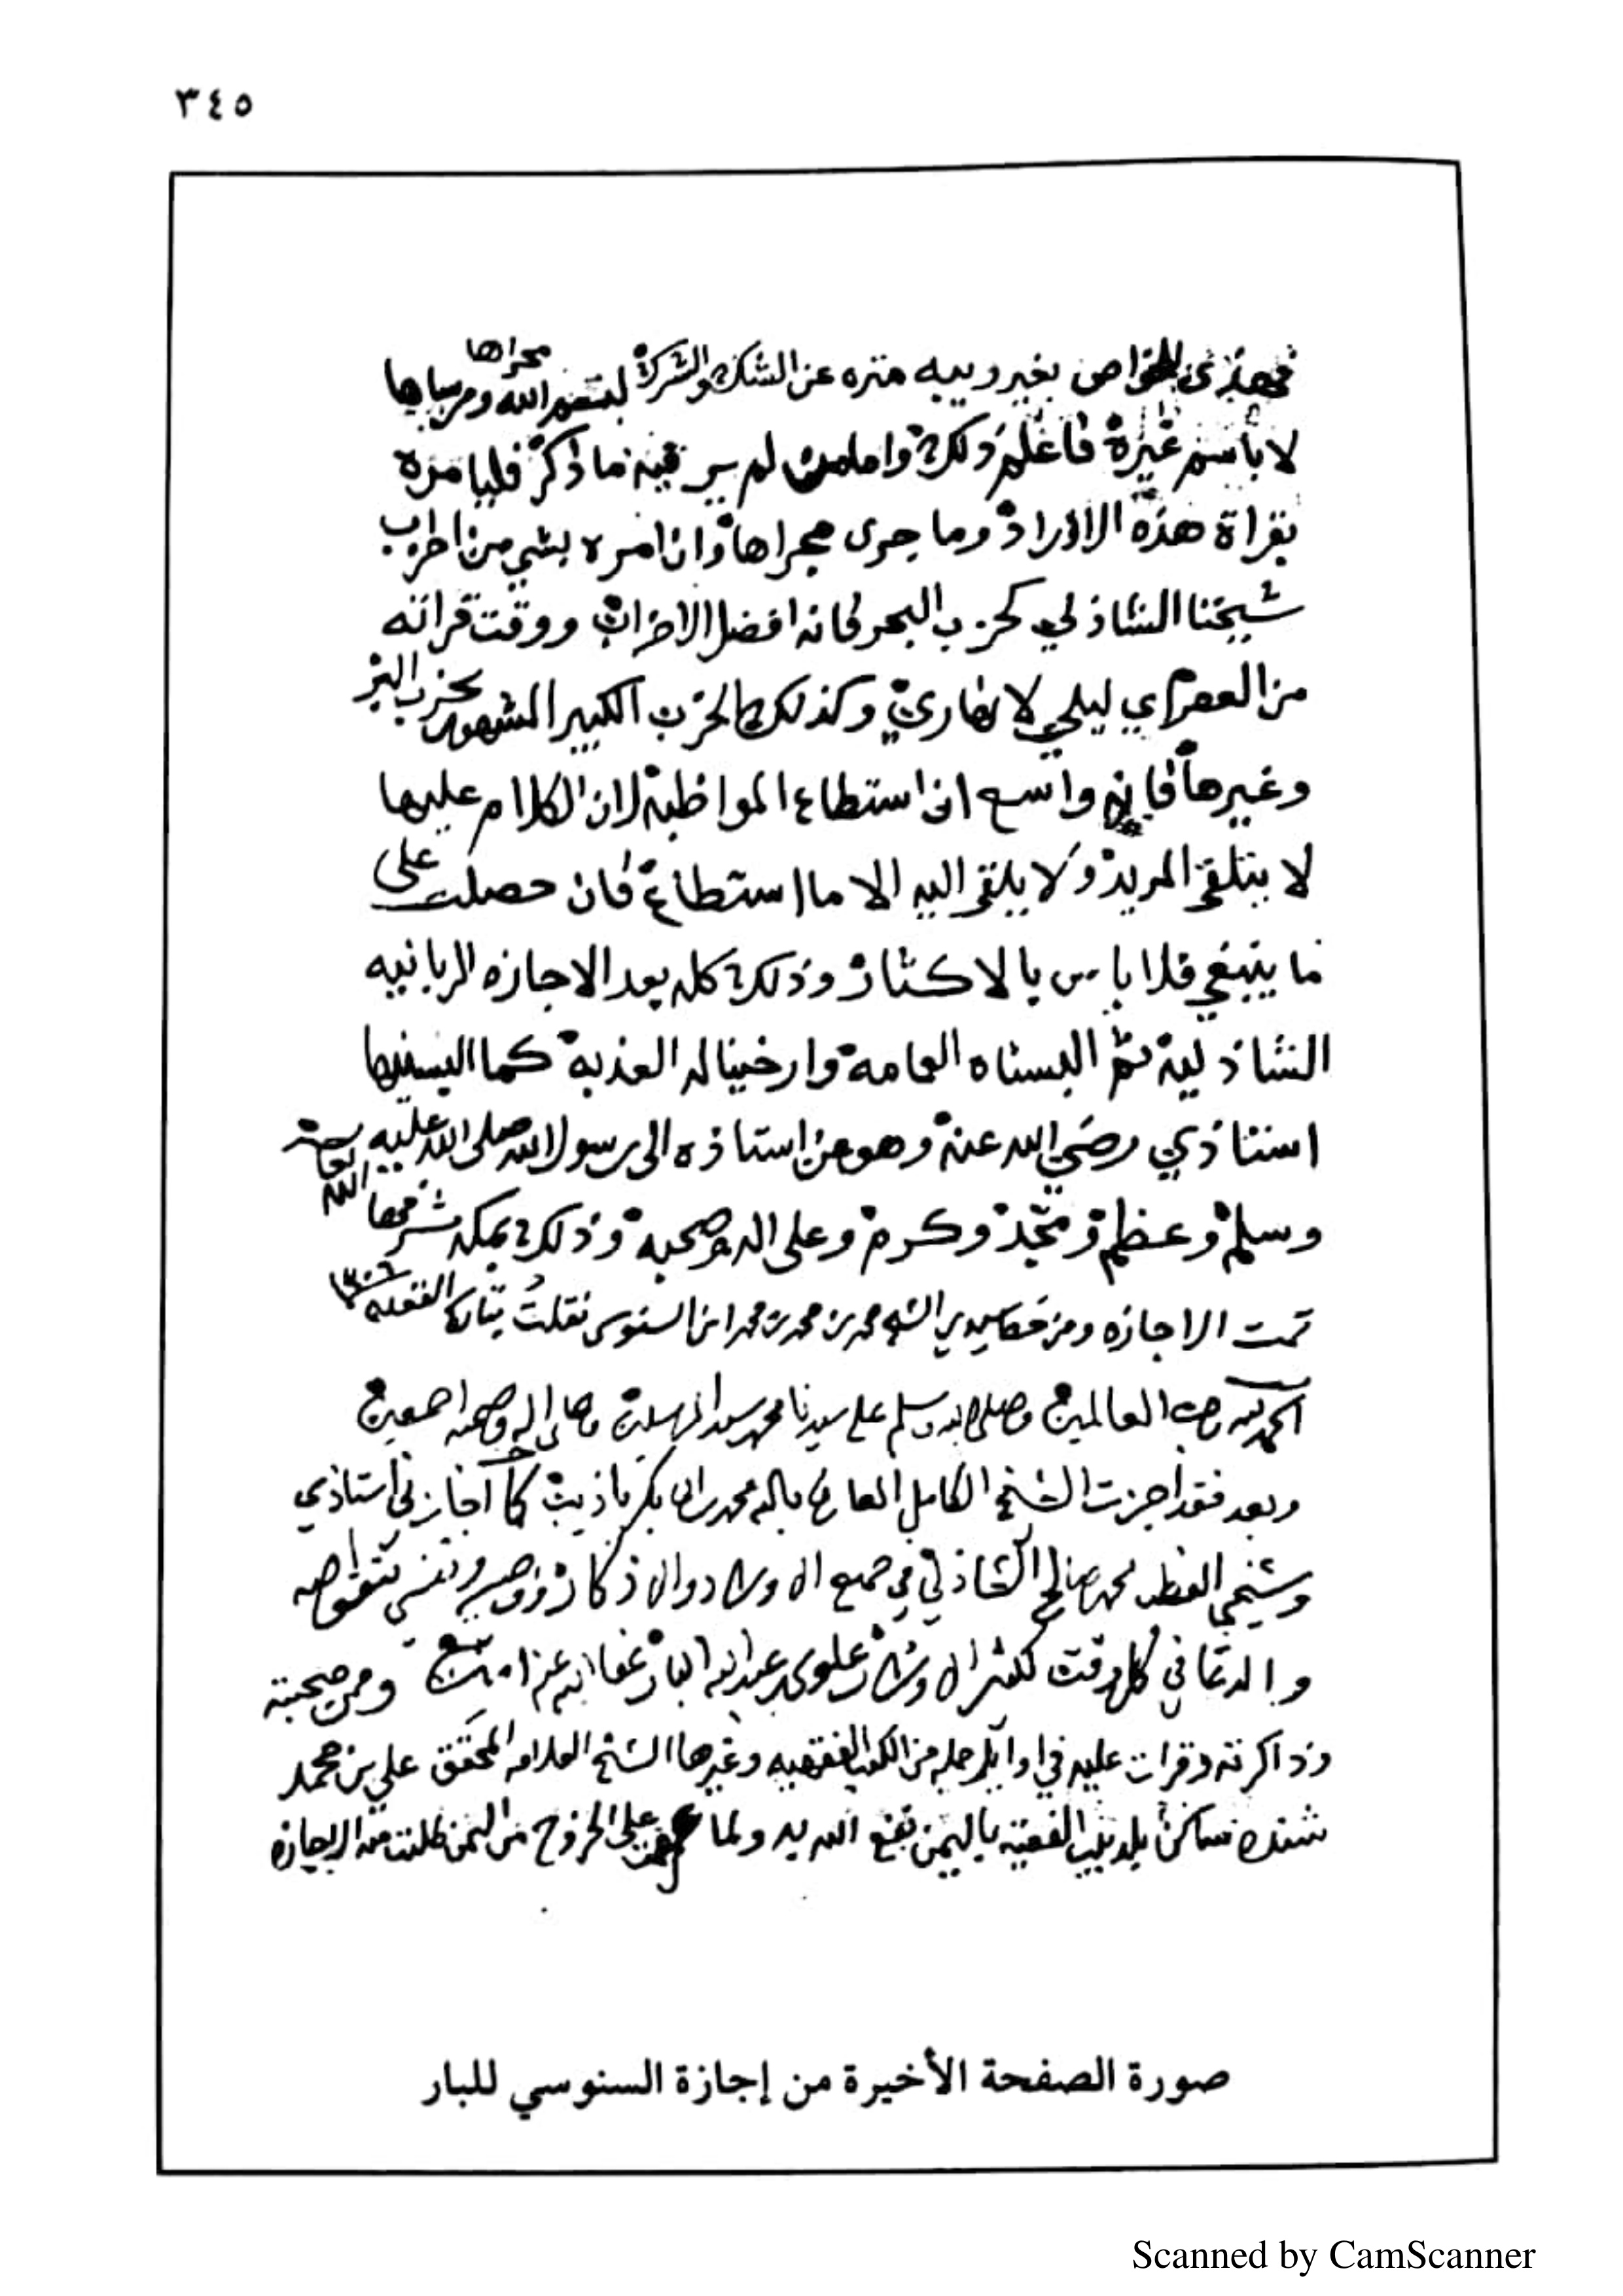 ٣٤٥
بغير ريبه منزه عن الشك والشرك الله مجراها ومرساها
لا بأسم غيره فاعلم ذلك واما من لم ير فيه ما ذكر فليامره
بقراة هذه الاوراد وما جرى مجراها وان امره بشي من احزاب
شيخنا الشاذلي كحزب البحر فانه افضل الاحزاب ووقت قراته
من العصر اي ليلي لا نهاري وكذلك الحزب الكبير المشهور بحزب البر
وغيرها فانه واسع ان استطاع المواظبة لان الكلام عليها
لا يتلقى المريد ولا يلقى اليه الا ما استطاع فان حصلت على
ما ينبغي فلا باس بالاكثار وذلك كله بعد الاجازه الربانيه
الشاذلية ثم البسناه العمامة وارخينا له العذبة كما البسنيها
استاذي رضي الله عنه وهو عن استاذه الى رسول الله صلى الله عليه
وسلم وعظم ومجد وكرم وعلى اله وصحبه وذلك بمكه شرفها الله
تمت الاجازه ومن خط سيدي محمد بن محمد بن محمد ابن السنوسي نقلت ١٣٠٦
الحمد لله رب العالمين وصلى الله وسلم على سيدنا محمد سيد المرسلين وعلى اله وصحبه اجمعين
وبعد فقد اجزت الشيخ الكامل العارف بالله محمد بن ابي بكر باذيب كما اجازني استاذي
وشيخي القطب محمد صالح الشاذلي في جميع الاوراد والاذكار
والدعا في كل وقت علوي عبد الله البار عفا الله عنه امين وممن صحبته
وذاكرته وقرات عليه في اوايل جمله من الكتب الفقهيه وغيرها الشيخ العلامه المحقق علي بن محمد
ساكن بلد بيت الفقيه باليمن نفع الله به ولما على الخروج من اليمن طلبت منه الاجازه
صورة الصفحة الأخيرة من إجازة السنوسي للبار
Scanned by CamScanner